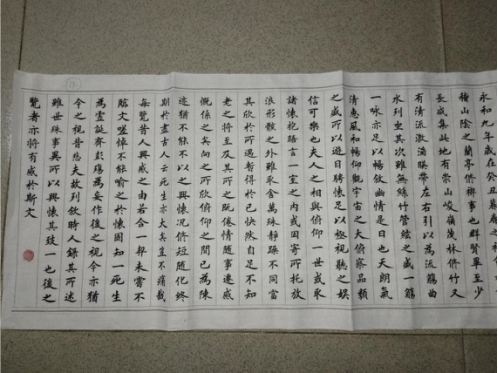 永和九年歲在癸丑暮春之初
稽山陰之蘭亭脩禊事也群賢畢至少
長咸集此地有崇山峻嶺茂林脩竹又
有清流激湍暎帶左右引以為流觴曲
水列坐其次雖無絲竹管絃之盛一觴
一詠亦足以暢敘幽情是日也天朗氣
清惠風和暢仰觀宇宙之大俯察品類
之盛所以遊目騁懷足以極視聽之娛
信可樂也夫人之相與俯仰一世或取
諸懷抱晤言一室之內或因寄所托放
浪形骸之外雖取舍萬殊靜躁不同當
其欣於所遇暫得於己快然自足不知
老之將至及其所之既倦情隨事遷感
慨係之矣向之所欣俯仰之間已為陳
迹猶不能不以之興懷況脩短隨化終
期於盡古人云死生亦大矣豈不痛哉
每覽昔人興感之由若合一契未嘗不
臨文嗟悼不能喻之於懷固知一死生
為虛誕齊彭殤為妄作後之視今亦猶
今之視昔悲夫故列敘時人錄其所述
雖世殊事異所以興懷其致一也後之
覽者亦將有感於斯文